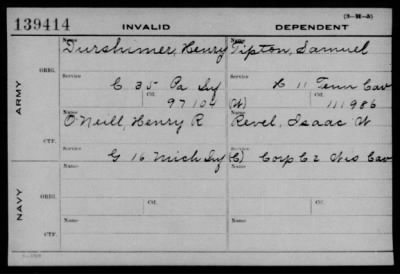 (3-M-5)
139414 INVALID DEPENDENT
Name Name
Durshimer, Henry Tipton, Samuel
ORIG. Service Service
C 35 Pa Inf H 11 Tenn Cav
Ctf. Ctf.
97104 (W) 111986
ARMY
Name Name
O'Neill, Henry R Revel, Isaac W
CTF. Service Service
G 16 Mich Inf (C) Corp C 2 Wis Cav
Name Ctf. Name Ctf.
ORIG.
NAVY
Name Name
CTF.